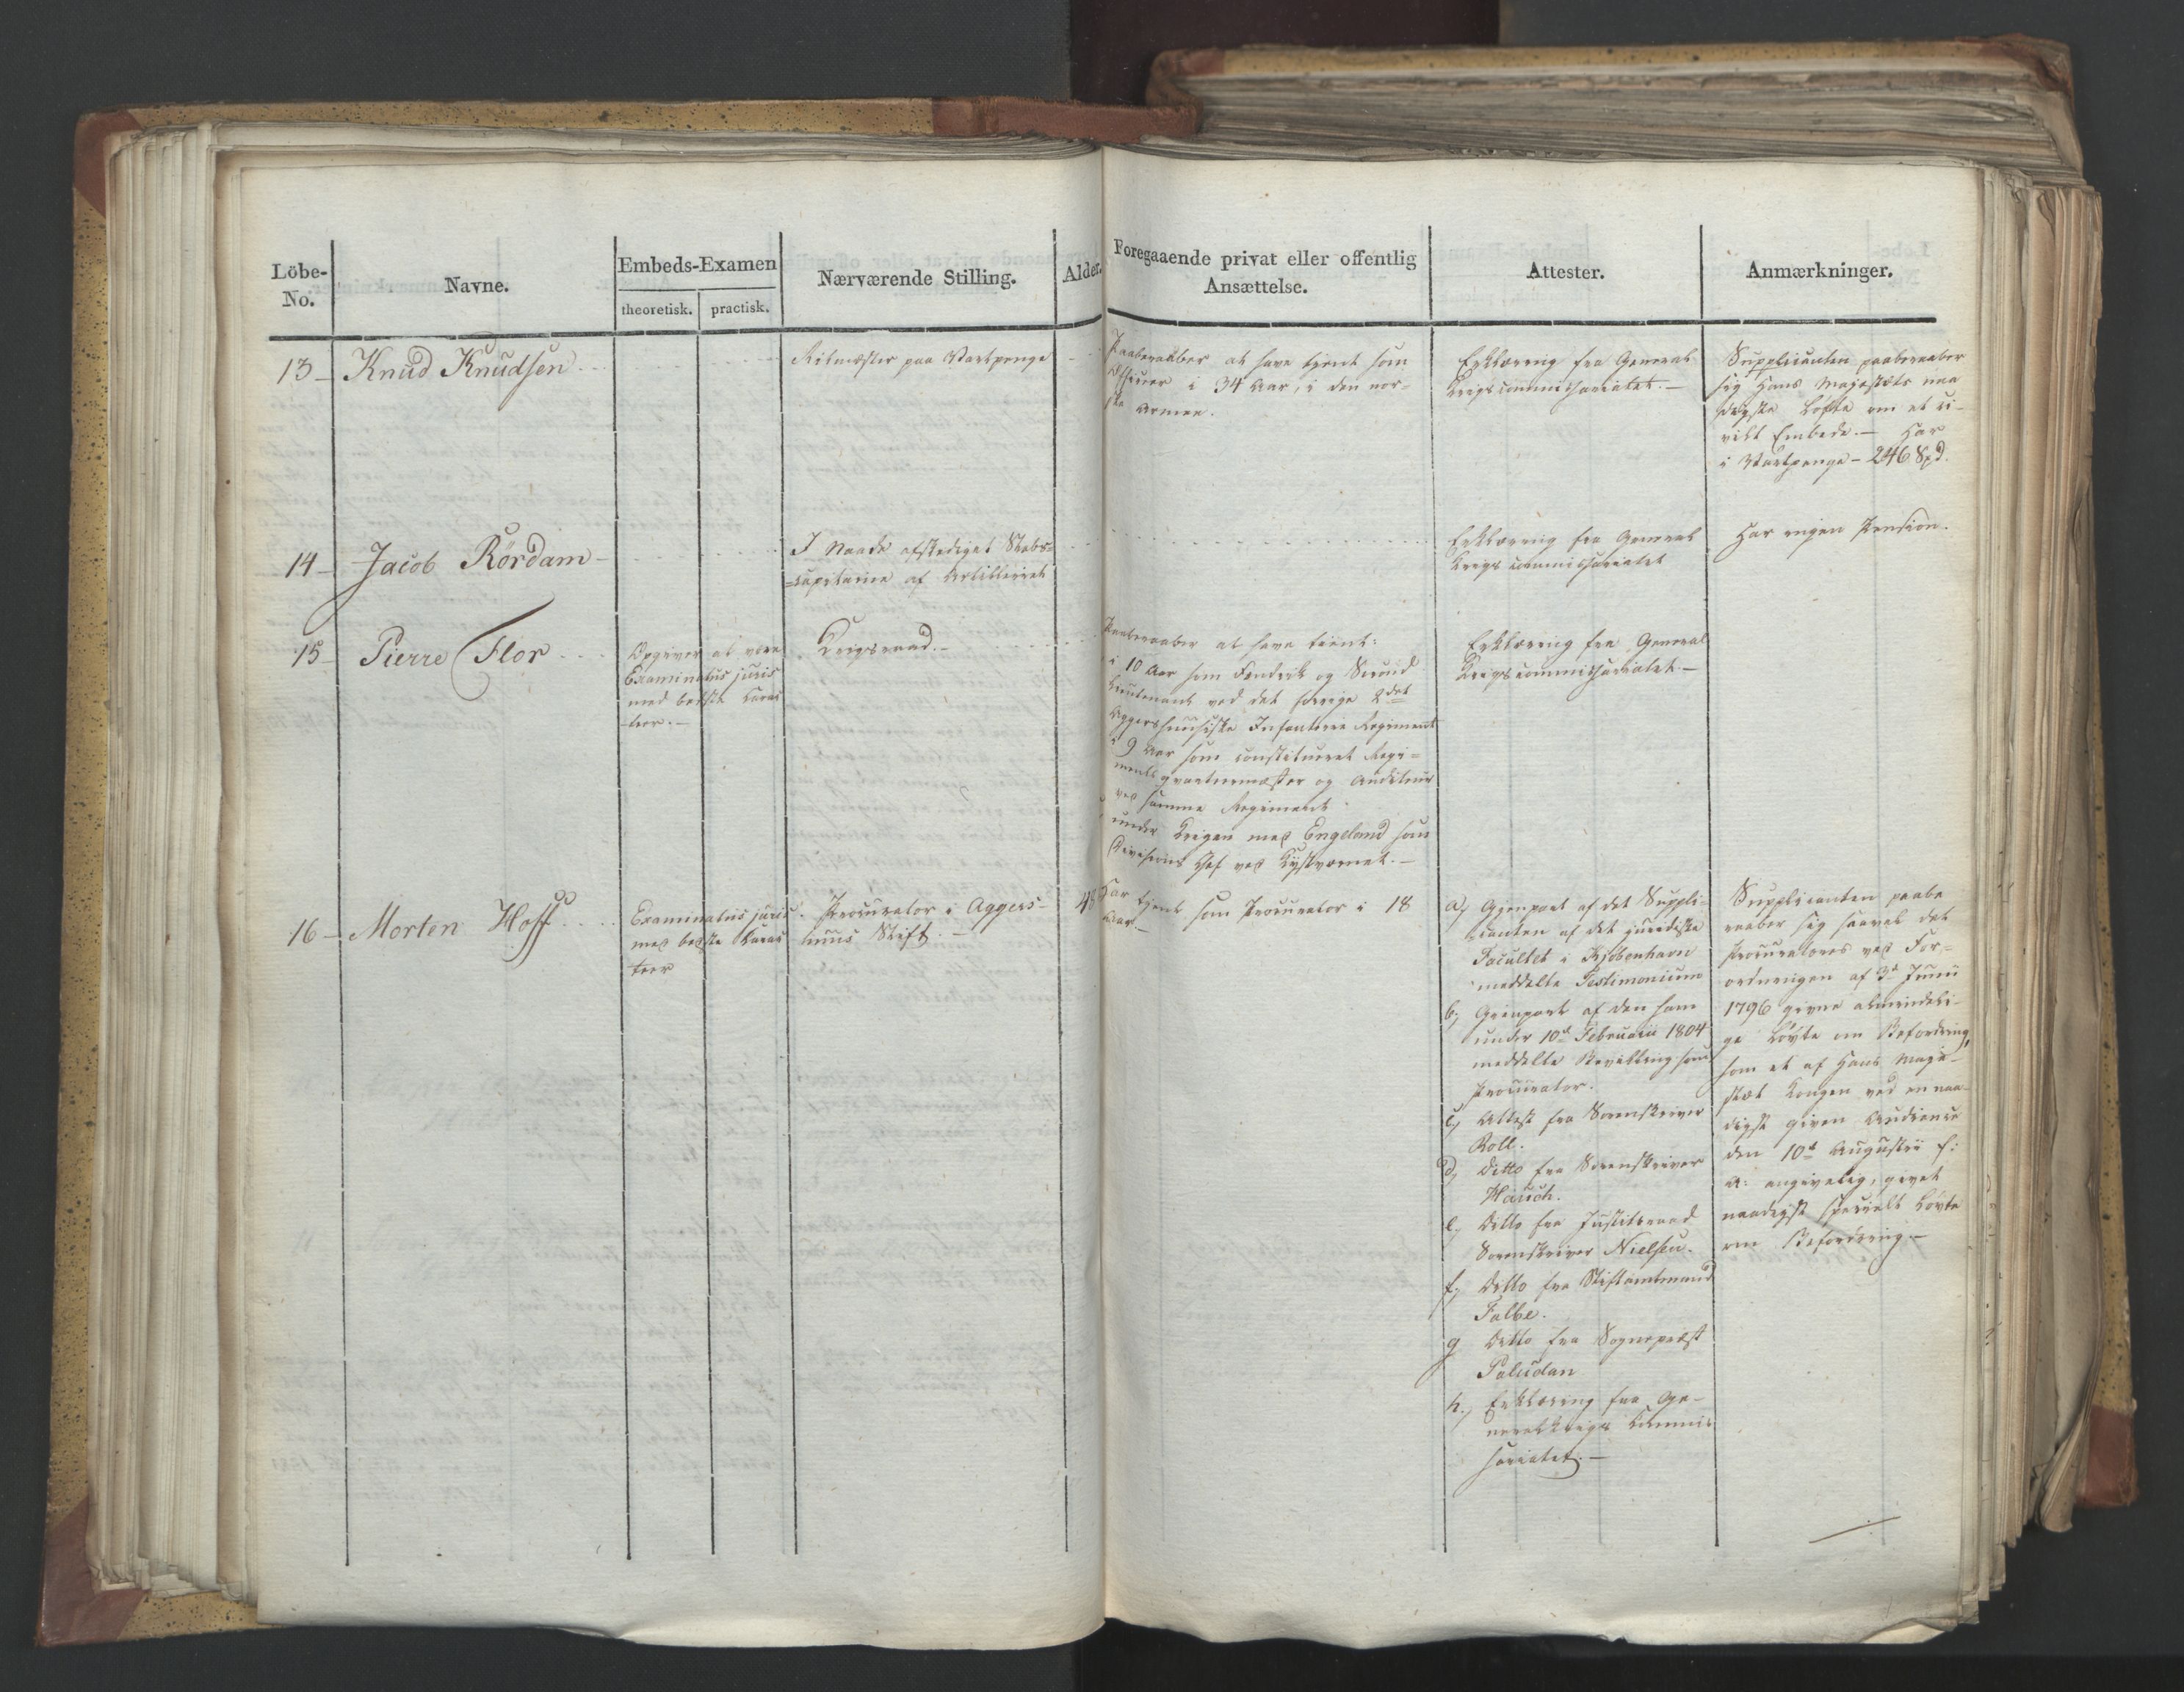 Löbe-
No.
Navne.
Embeds-Examen
theoretisk.
practisk.
Nærværende Stilling.
Alder.
Foregaaende privat eller offentlig
Ansættelse.
Attester.
Anmærkninger.
13 –
Knud Knudsen
Ritmester paa Vartpenge
Paaberaaber at have tjent som
Officier i 34 Aar, i den nor-
ske Armee.
Erklæring fra General
Krigscommissariatet. –
Supplicanten paaberaaber
sig Hans Majestæts naa
digste Løfte om et ci-
vilt Embede. – Har
i Vartpenge – 246 Spd.
14 –
Jacob Rördam –
I Naade afskediget Stabs-
=capitaine af Artilleriet
Erklæring fra General
Krigscommissariatet
Har ingen Pension.
15 –
Pierre Flor
Opgiver at være
Examinatus juris
med bedste Carac
-teer. –
Krigsraad. –
Paaberaaber at have tient:
i 10 Aar som Fendrik og Second
Lieutenant ved det forrige 2det
Aggershuusiske Infanterie Regiment
i 9 Aar som constitueret Regi=
ments qvarteermester og Auditeur
ved samme Regiment
under Krigen med Engeland som
Divisions Chef ved Kystværnet. –
Erklæring fra General
Krigscommissariatet. –
16 –
Morten Hoff
Examinatus juris
med bedste Carac
teer
Procurator i Aggers-
huus Stift. –
48
Har tjent som Procurator i 18
Aar. –
a, Gjenpart af det Suppli-
canten af det juridiske
Facultet i Kjøbenhavn
meddelte Testimonium
b, Gjenpart af den ham
under 10d Februarii 1804
meddelte Bevilling som
Procurator.
c, Attest fra Sorenskriver
Roll.
d, Ditto fra Sorenskriver
Hauch.
e, Ditto fra Justitsraad
Sorenskriver Nielsen.
f, Ditto fra Stiftamtmand
Falbe.
g Ditto fra Sognepræst
Paludan
h., Erklæring fra Ge-
neralkrigs Commis
sariatet. –
Supplicanten paabe
raaber sig saavel det
Procuratorer ved For-
ordningen af 3d Junii
1796 givne almindeli-
ge Løvte om Befordring,
som et af Hans Maje-
stæt Kongen ved en naa-
digst given Audience
den 10d Augustii f:
A: angivelig, givet
naadigst specielt Løvte
om Befordring. –